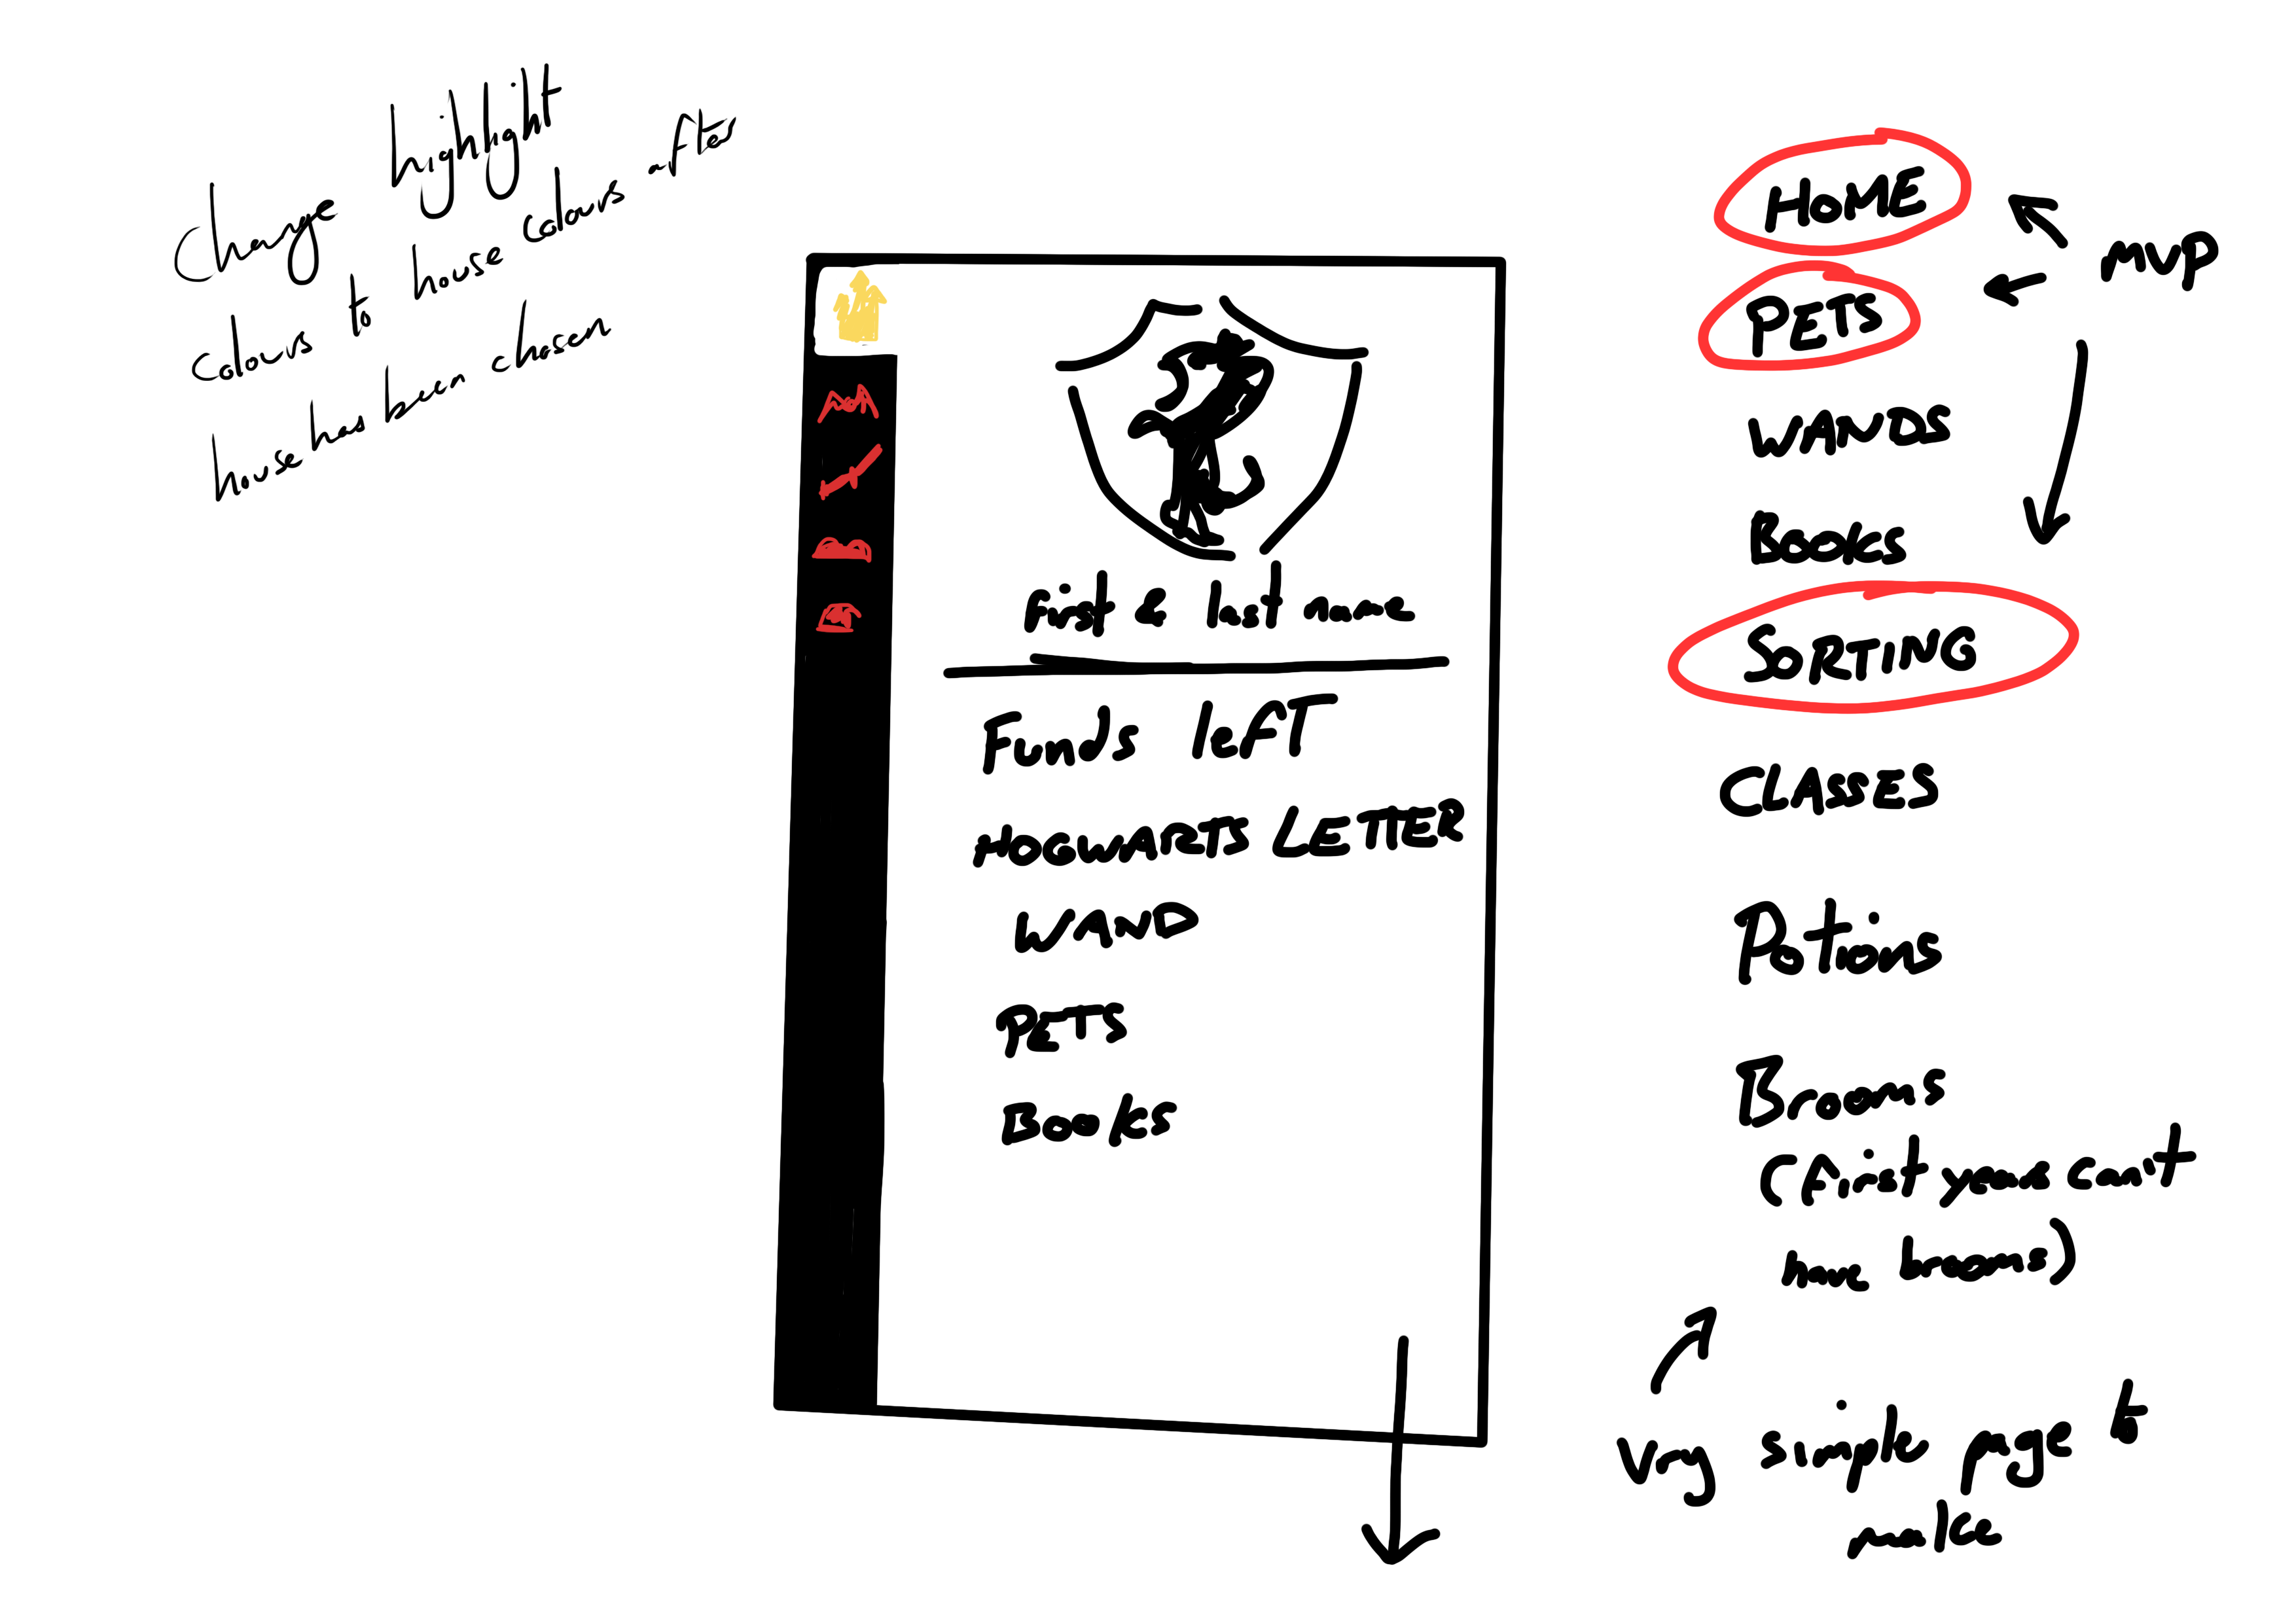 Change highlight
colours to house colours after
house has been chosen
First & last name
Funds left
HOGWARTS LETTER
WAND
PETS
Books
HOME
MVP
PETS
WANDS
Books
SORTING
CLASSES
Potions
Brooms
(first years can't
have brooms)
Very simple page to
make